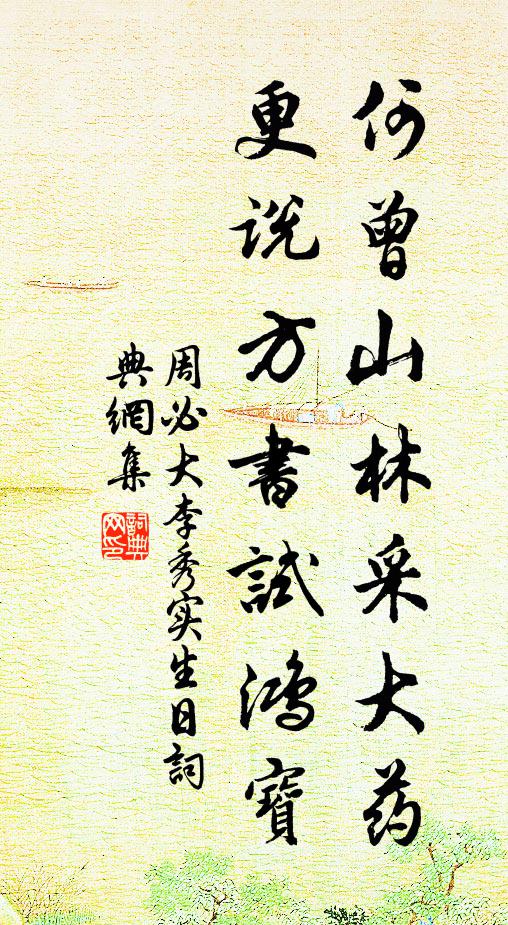 何曾山林采大药
更说方書試鴻寶
周必大李秀实生日詞
典網集
詞典网印